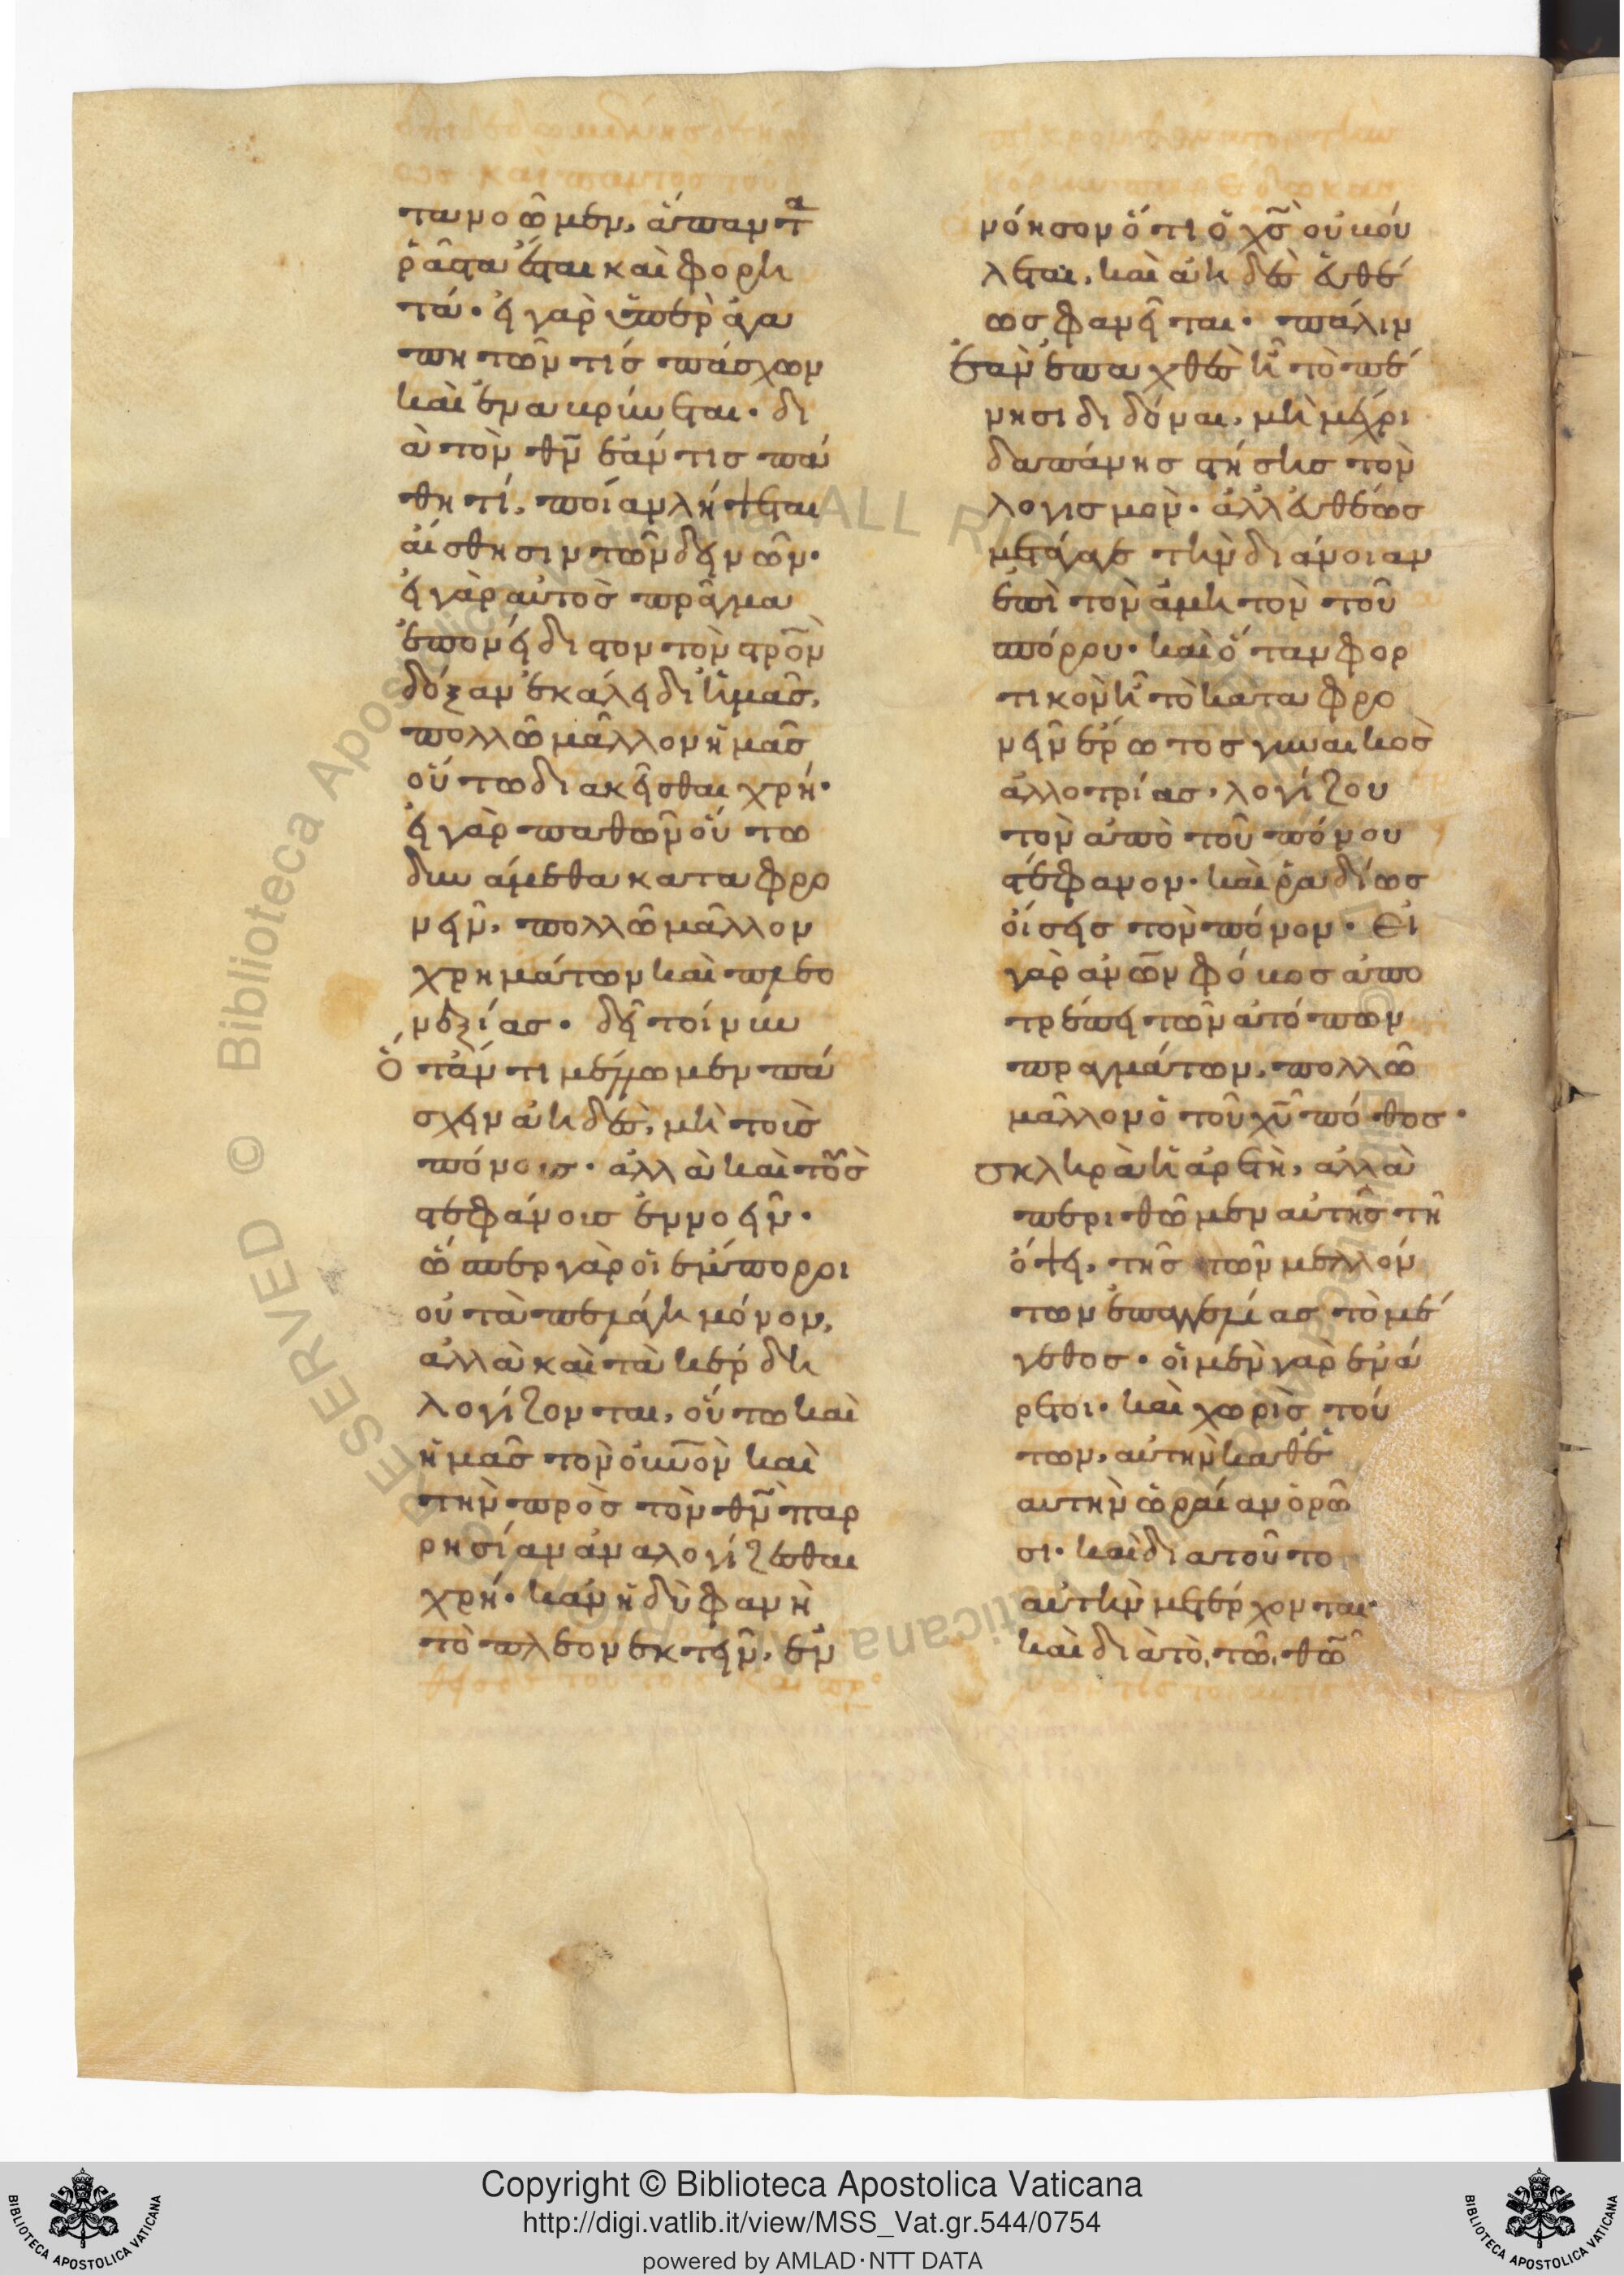 ταῦ νοῶμεν, ἅπαντα
ῥᾷστα ἔσται καὶ φορη
τά· εἰ γὰρ ὑπὲρ ἀγα
πητῶν τίς πάσχων
καὶ ἐναβρύνεται· δι
ὰ τὸν θν̅ ἐάν τις πά
θη τί, ποίαν λήψεται
αἴσθησιν τῶν δεινῶν·
εἰ γὰρ αὐτὸς πρᾶγμα
ἐπονείδιστον τὸν στρο̅ν
δόξαν ἐκάλει δι ἡμᾶς,
πολλῶ μᾶλλον ἡμᾶς
οὕτω διακεῖσθαι χρή·
εἰ γὰρ παθῶν οὕτω
δυνάμεθα καταφρο
νεῖν, πολλῶ μᾶλλον
χρημάτων καὶ πλεο
νεξίας· δεῖ τοίνυν
ὅταν τι μέλλωμεν πά
σχειν ἀηδὲς, μὴ τοῖς
πόνοις· ἀλλὰ καὶ τοῖς
στεφάνοις ἐννοεῖν·
ὥσπερ γὰρ οἱ ἔμποροι
οὐ τὰ πελάγη μόνον,
ἀλλὰ καὶ τὰ κέρδη
λογίζονται, οὕτω καὶ
ἡμᾶς τὸν οὐν̅ον καὶ
τὴν πρὸς τὸν θν̅ παρ
ρησίαν ἀναλογίζεσθαι
χρή· κἂν ἡδὺ φανῆ
τὸ πλεονεκτεῖν, ἐν
νόησον ὅτι ὁ χς̅ οὐ βού
λεται, καὶ ἀηδὲς εὐθέ
ως φανεῖται· πάλιν
ἐὰν ἐπαχθὲς ἦ τὸ πέ
νησι διδόναι, μὴ μέχρι
δαπάνης στήσης τὸν
λογισμὸν· ἀλλ εὐθέως
μετάγαγε τὴν διάνοιαν
ἐπὶ τὸν ἄμητον τοῦ
σπόρου· καὶ ὅταν φορ
τικὸν ἦ τὸ καταφρο
νεῖν ἔρωτος γυναικὸς
ἀλλοτρίας, λογίζου
τὸν ἀπὸ τοῦ πόνου
στέφανον· καὶ ῥαδίως
οἴσεις τὸν πόνον· Εἰ
γὰρ ἀνῶν φόβος ἀπο
τρέπει τῶν ἀτόπων
πραγμάτων, πολλῶ
μᾶλλον ὁ τοῦ χυ̅ πόθος·
σκληρὰ ἡ ἀρετὴ, ἀλλὰ
περιθῶμεν αὐτῆς τῆ
ὄψει, τῆς τῶν μελλόν
των ἐπαγγελίας τὸ μέ
γεθος· οἱ μὲν γὰρ ἐνά
ρετοι· καὶ χωρὶς τού
των, αὐτὴν καθ ἑ
αυτὴν ὡραίαν ὁρῶ
σι· καὶ διατοῦτο
αὐτὴν μετέρχονται·
καὶ διὰ τὸ, τῶ, θῶ
Copyright © Biblioteca Apostolica Vaticana
http://digi.vatlib.it/view/MSS_Vat.gr.544/0754
powered by AMLAD·NTT DATA
BIBLIOTECA APOSTOLICA VATICANA
BIBLIOTECA APOSTOLICA VATICANA